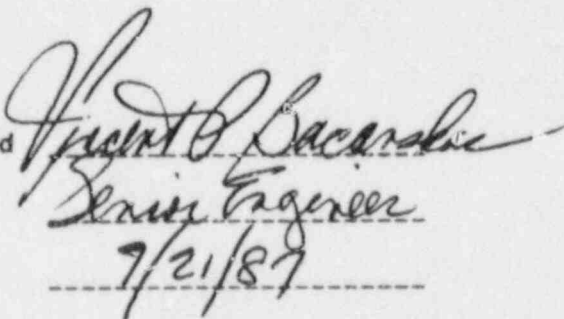 d Vincent P Bacanskas
Senior Engineer
9/21/87